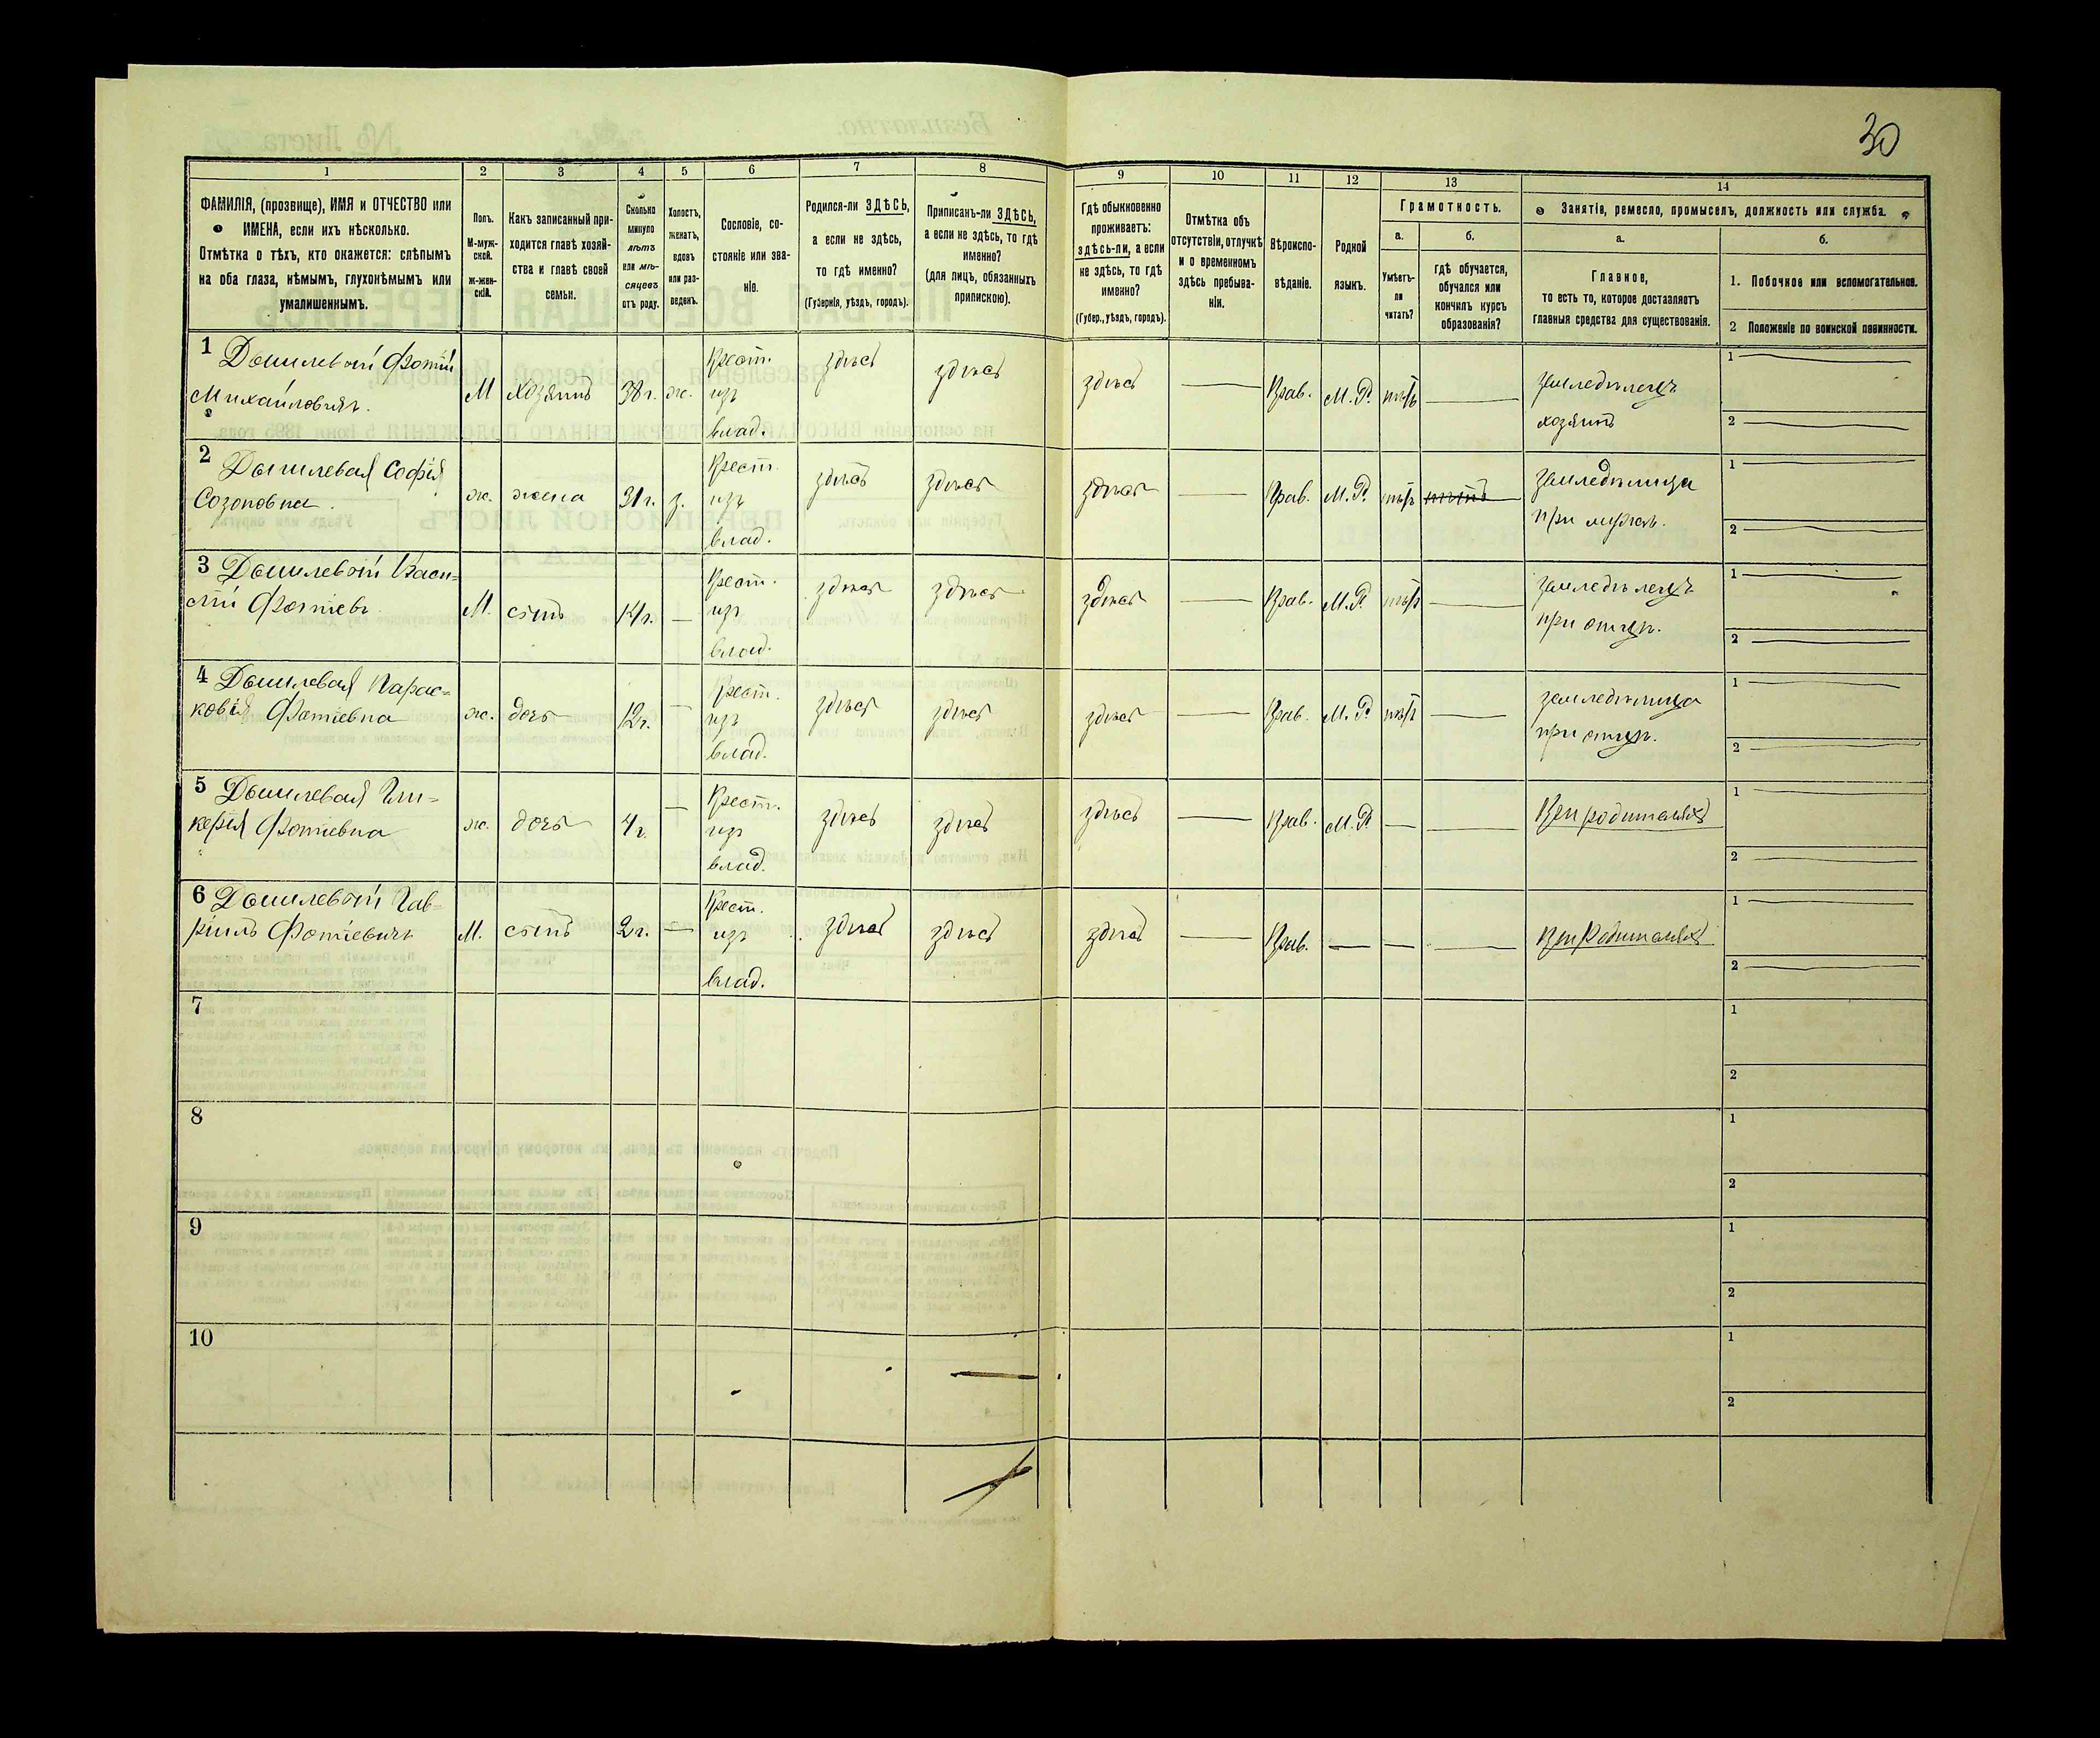 30
1
2
3
4
5
6
7
8
9
10
11
12
13
14
ФАМИЛІЯ, (прозвище), ИМЯ и ОТЧЕСТВО или
ИМЕНА, если ихъ нѣсколько.
Отмѣтка о тѣхъ, кто окажется: слѣпымъ
на оба глаза, нѣмымъ, глухонѣмымъ или
умалишеннымъ.
Полъ.
М-муж-
ской.
ж-жен-
скій.
Какъ записанный при-
ходится главѣ хозяй-
ства и главѣ своей
семьи.
Сколько
минуло
лѣтъ
или мѣ-
сяцевъ
отъ роду.
Холостъ,
женатъ,
вдовъ
или раз-
веденъ.
Сословіе, со-
стояніе или зва-
ніе.
Родился-ли ЗДѢСЬ,
а если не здѣсь,
то гдѣ именно?
(Губернія, уѣздъ, городъ).
Приписанъ-ли ЗДѢСЬ,
а если не здѣсь, то гдѣ
именно?
(для лицъ, обязанныхъ
припискою).
Гдѣ обыкновенно
проживаетъ:
здѣсь-ли, а если
не здѣсь, то гдѣ
именно?
(Губер., уѣздъ, городъ).
Отмѣтка объ
отсутствіи, отлучкѣ
и о временномъ
здѣсь пребыва-
ніи.
Вѣроиспо-
вѣданіе.
Родной
языкъ.
Грамотность.
а.
Умѣетъ-
ли
читать?
б.
гдѣ обучается,
обучался или
кончилъ курсъ
образованія?
Занятіе, ремесло, промыселъ, должность или служба.
а.
Главное,
то есть то, которое доставляетъ
главныя средства для существованія.
б.
1. Побочное или вспомогательное.
2 Положеніе по воинской повинности.
1 Дошлевой Фотій
Михайловичъ.
М
хозяинъ
38 г.
ж.
Крест.
изъ
влад.
здѣсь
здѣсь
здѣсь
Прав.
М. Р.
нѣтъ
земледѣлецъ
хозяинъ
1
2
2 Дошлевая Софія
Созоновна.
ж.
жена
31 г.
з.
Крест.
изъ
влад.
здѣсь
здѣсь
здѣсь
Прав.
М. Р.
нѣтъ
нѣтъ
земледѣлица
при мужѣ.
1
2
3 Дошлевой Васи-
лій Фотіевъ
М.
сынъ
14 г.
Крест.
изъ
влад.
здѣсь
здѣсь
здѣсь
Прав.
М. Р.
нѣтъ
земледѣлецъ
при отцѣ.
1
2
4 Дошлевая Парас-
ковія Фотіевна
ж.
дочь
12 г.
Крест.
изъ
влад.
здѣсь
здѣсь
здѣсь
Прав.
М. Р.
нѣтъ
земледѣлица
при отцѣ.
1
2
5 Дошлевая Гли-
керія Фотіевна
ж.
дочь
4 г.
Крест.
изъ
влад.
здѣсь
здѣсь
здѣсь
Прав.
М. Р.
При родителяхъ
1
2
6 Дошлевой Гав-
ріилъ Фотіевичъ
М.
сынъ
2 г.
Крест.
изъ
влад.
здѣсь
здѣсь
здѣсь
Прав.
При Родителяхъ
1
2
7
1
2
8
1
2
9
1
2
10
1
2